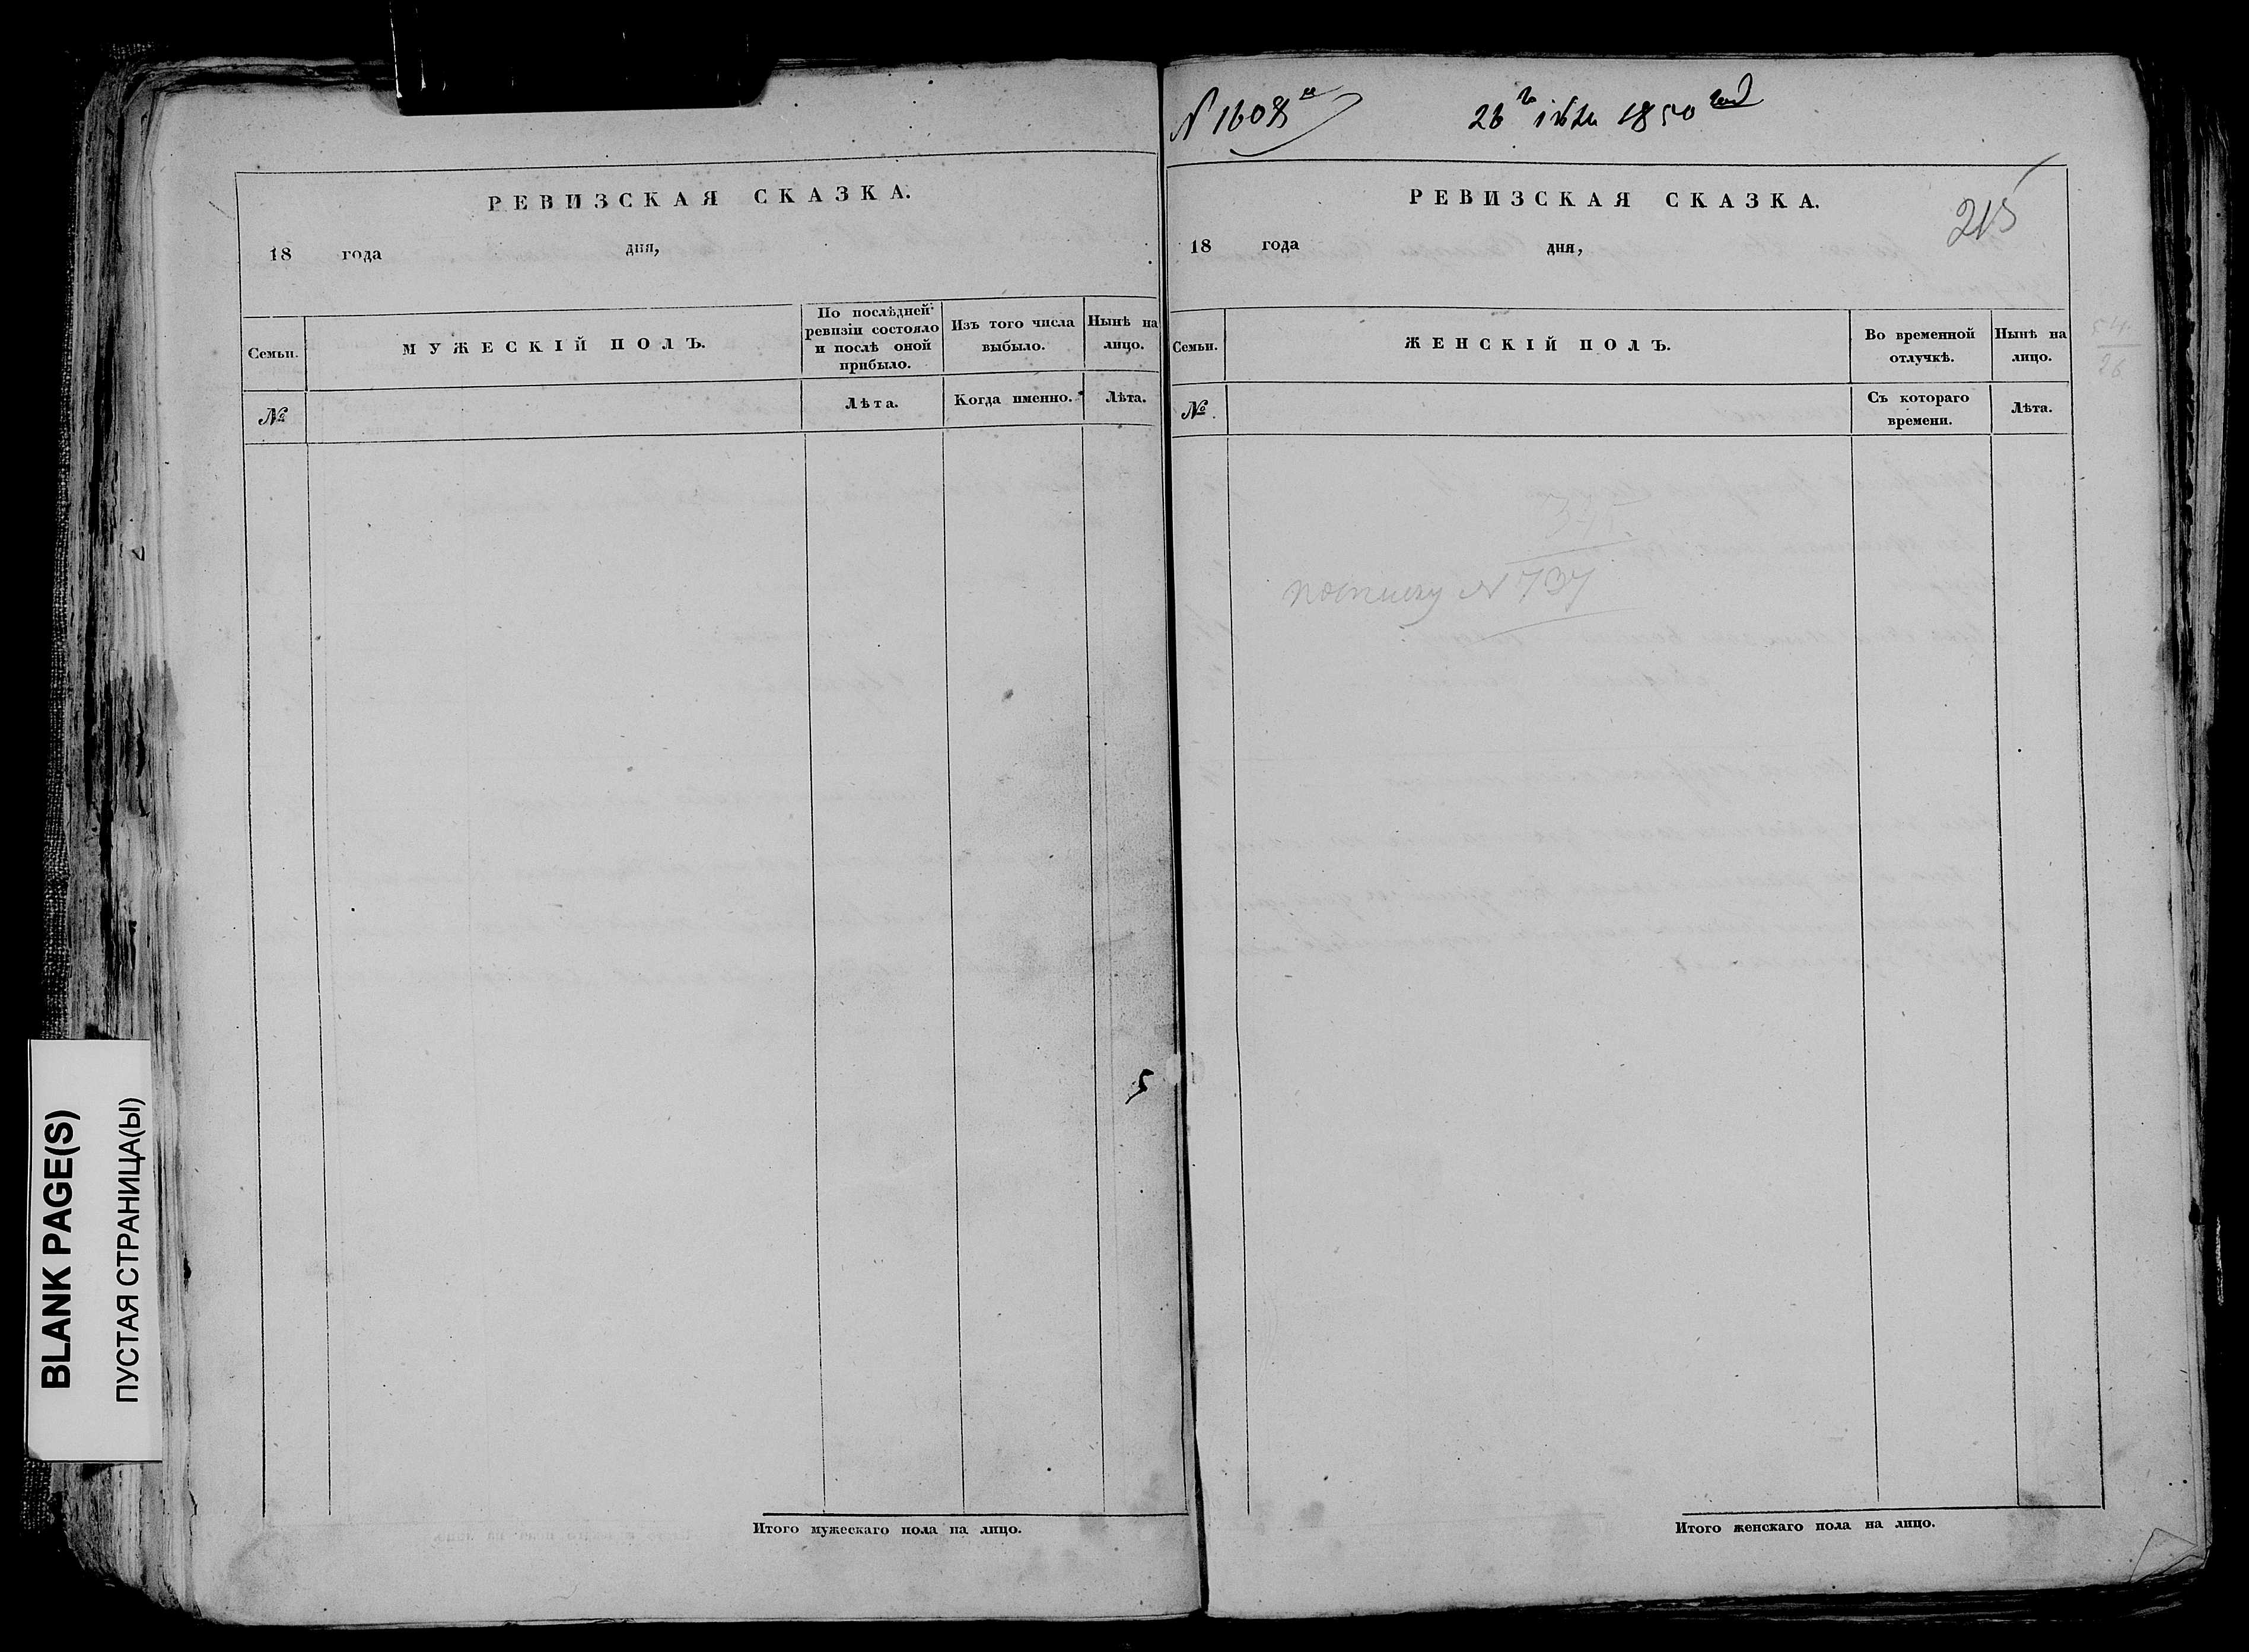 РЕВИЗСКАЯ СКАЗКА.
18 года дня,
Семьи.
МУЖЕСКІЙ ПОЛЪ.
По послѣдней
ревизіи состояло
и послѣ оной
прибыло.
Изъ того числа
выбыло.
Нынѣ на
лицо.
№
Лѣта.
Когда именно.
Лѣта.
5
Итого мужескаго пола на лицо.
BLANK PAGE(S)
ПУСТАЯ СТРАНИЦА(Ы)
26 1850
215
РЕВИЗСКАЯ СКАЗКА.
18 года дня,
Семьи.
ЖЕНСКІЙ ПОЛЪ.
Во временной
отлучкѣ.
Нынѣ на
лицо.
№.
Съ котораго
времени.
Лѣта.
54.
26
по списку № 737
Итого женскаго пола на лицо.